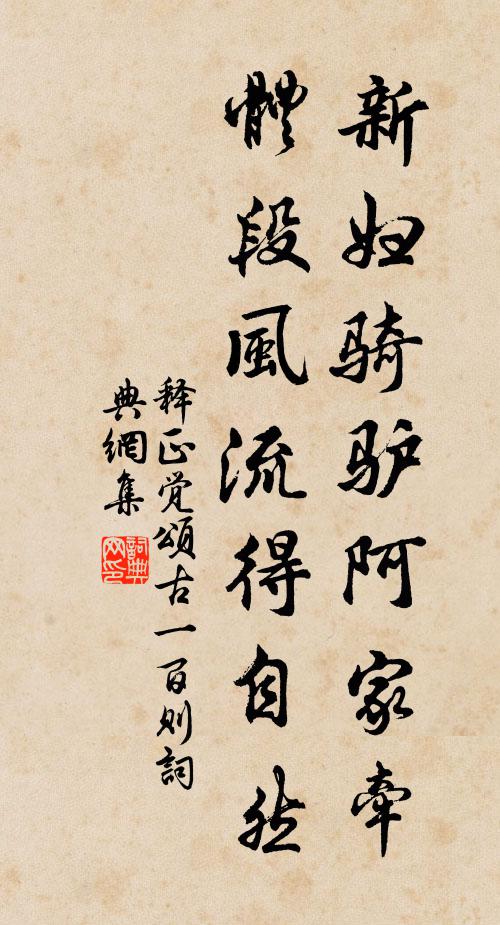 新妇骑驴阿家牽
體段風流得自然
释正觉頌古一百则詞
典網集
詞典
网印